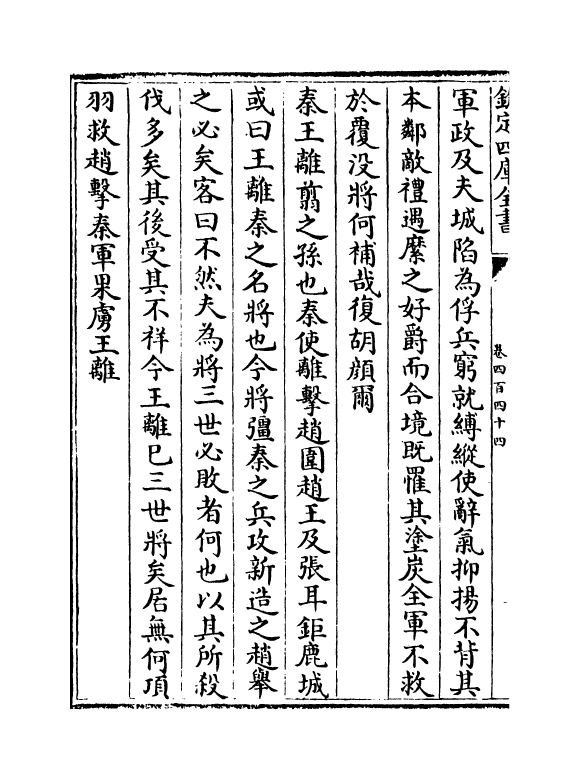 欽定四庫全書
卷四百四十四
軍政及夫城陷為俘兵窮就縛縱使辭氣抑揚不背其
本鄰敵禮遇縻之好爵而合境既罹其塗炭全軍不救
於覆没將何補哉復胡顔爾
秦王離翦之孫也秦使離擊趙圍趙王及張耳鉅鹿城
或曰王離秦之名將也今將彊秦之兵攻新造之趙舉
之必矣客曰不然夫為將三世必敗者何也以其所殺
伐多矣其後受其不祥今王離已三世將矣居無何項
羽救趙擊秦軍果虜王離